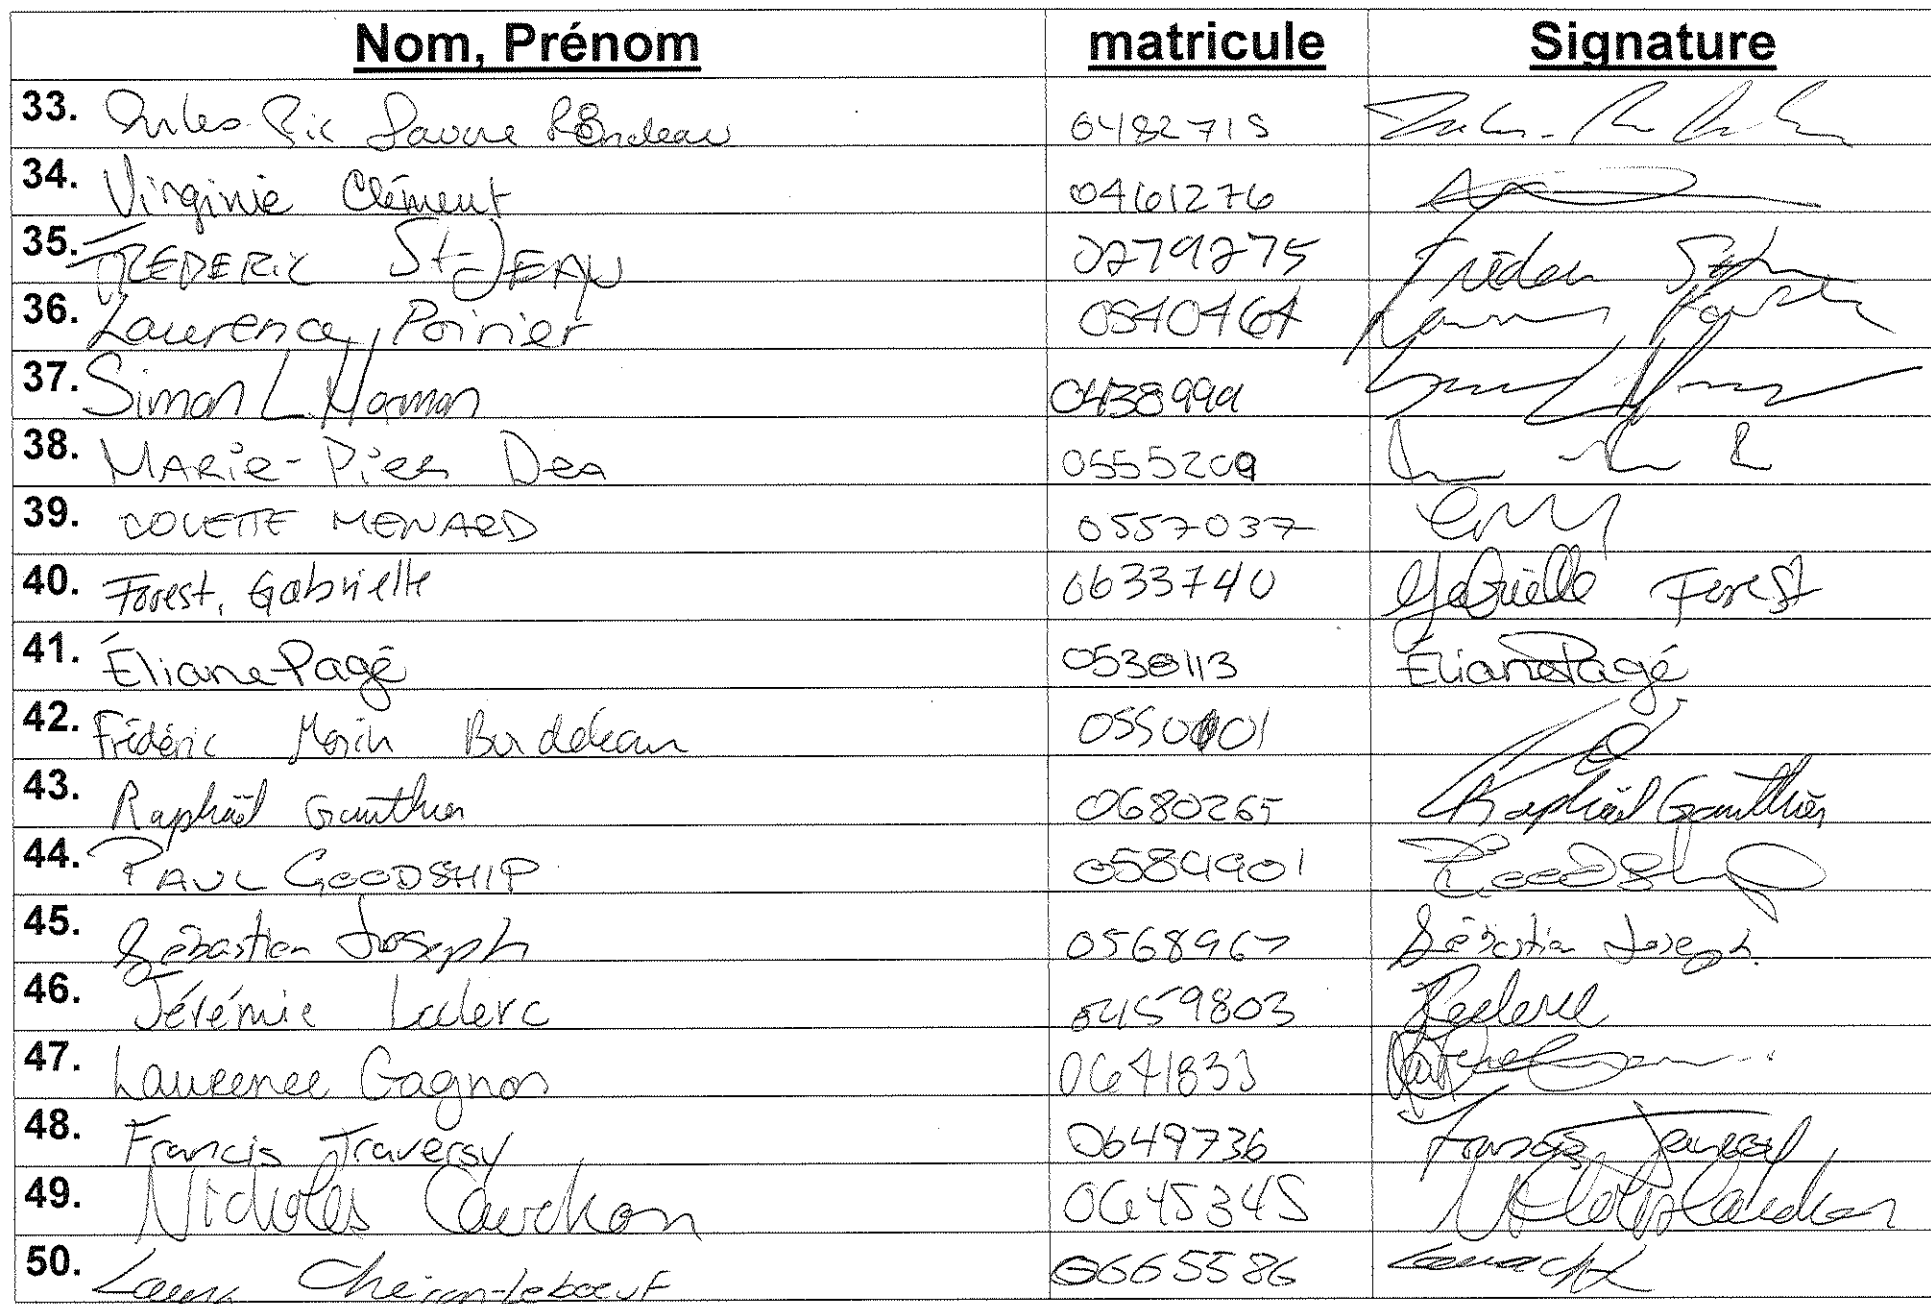 Nom, Prénom matricule Signature
33. Jules Pic Savoie Rondeau 0482715
34. Virginie Clément 0461276
35. FRÉDERIC St-JEAN 0279275
36. Laurence Poirier 0540464
37. Simon L Harmon 0438999
38. MARIE-Pier Dea 0555209
39. COLETTE MENARD 0557037
40. Forest, Gabrielle 0633740 Gabrielle Forest
41. Éliane Pagé 0538113 Éliane Pagé
42. Frédéric Morin Bordeleau
43. Raphaël Gauthier 0680265 Raphaël Gauthier
44. PAUL GOODSHIP 0584901
45. Sébastien Joseph 0568967 Sébastien Joseph
46. Jérémie Leclerc 0459803
47. Laurence Gagnon 0641833
48. Francis Traversy 0649736 Francis
49. Nicholas 0645345
50. Laura Chéron-Leboeuf 0665586